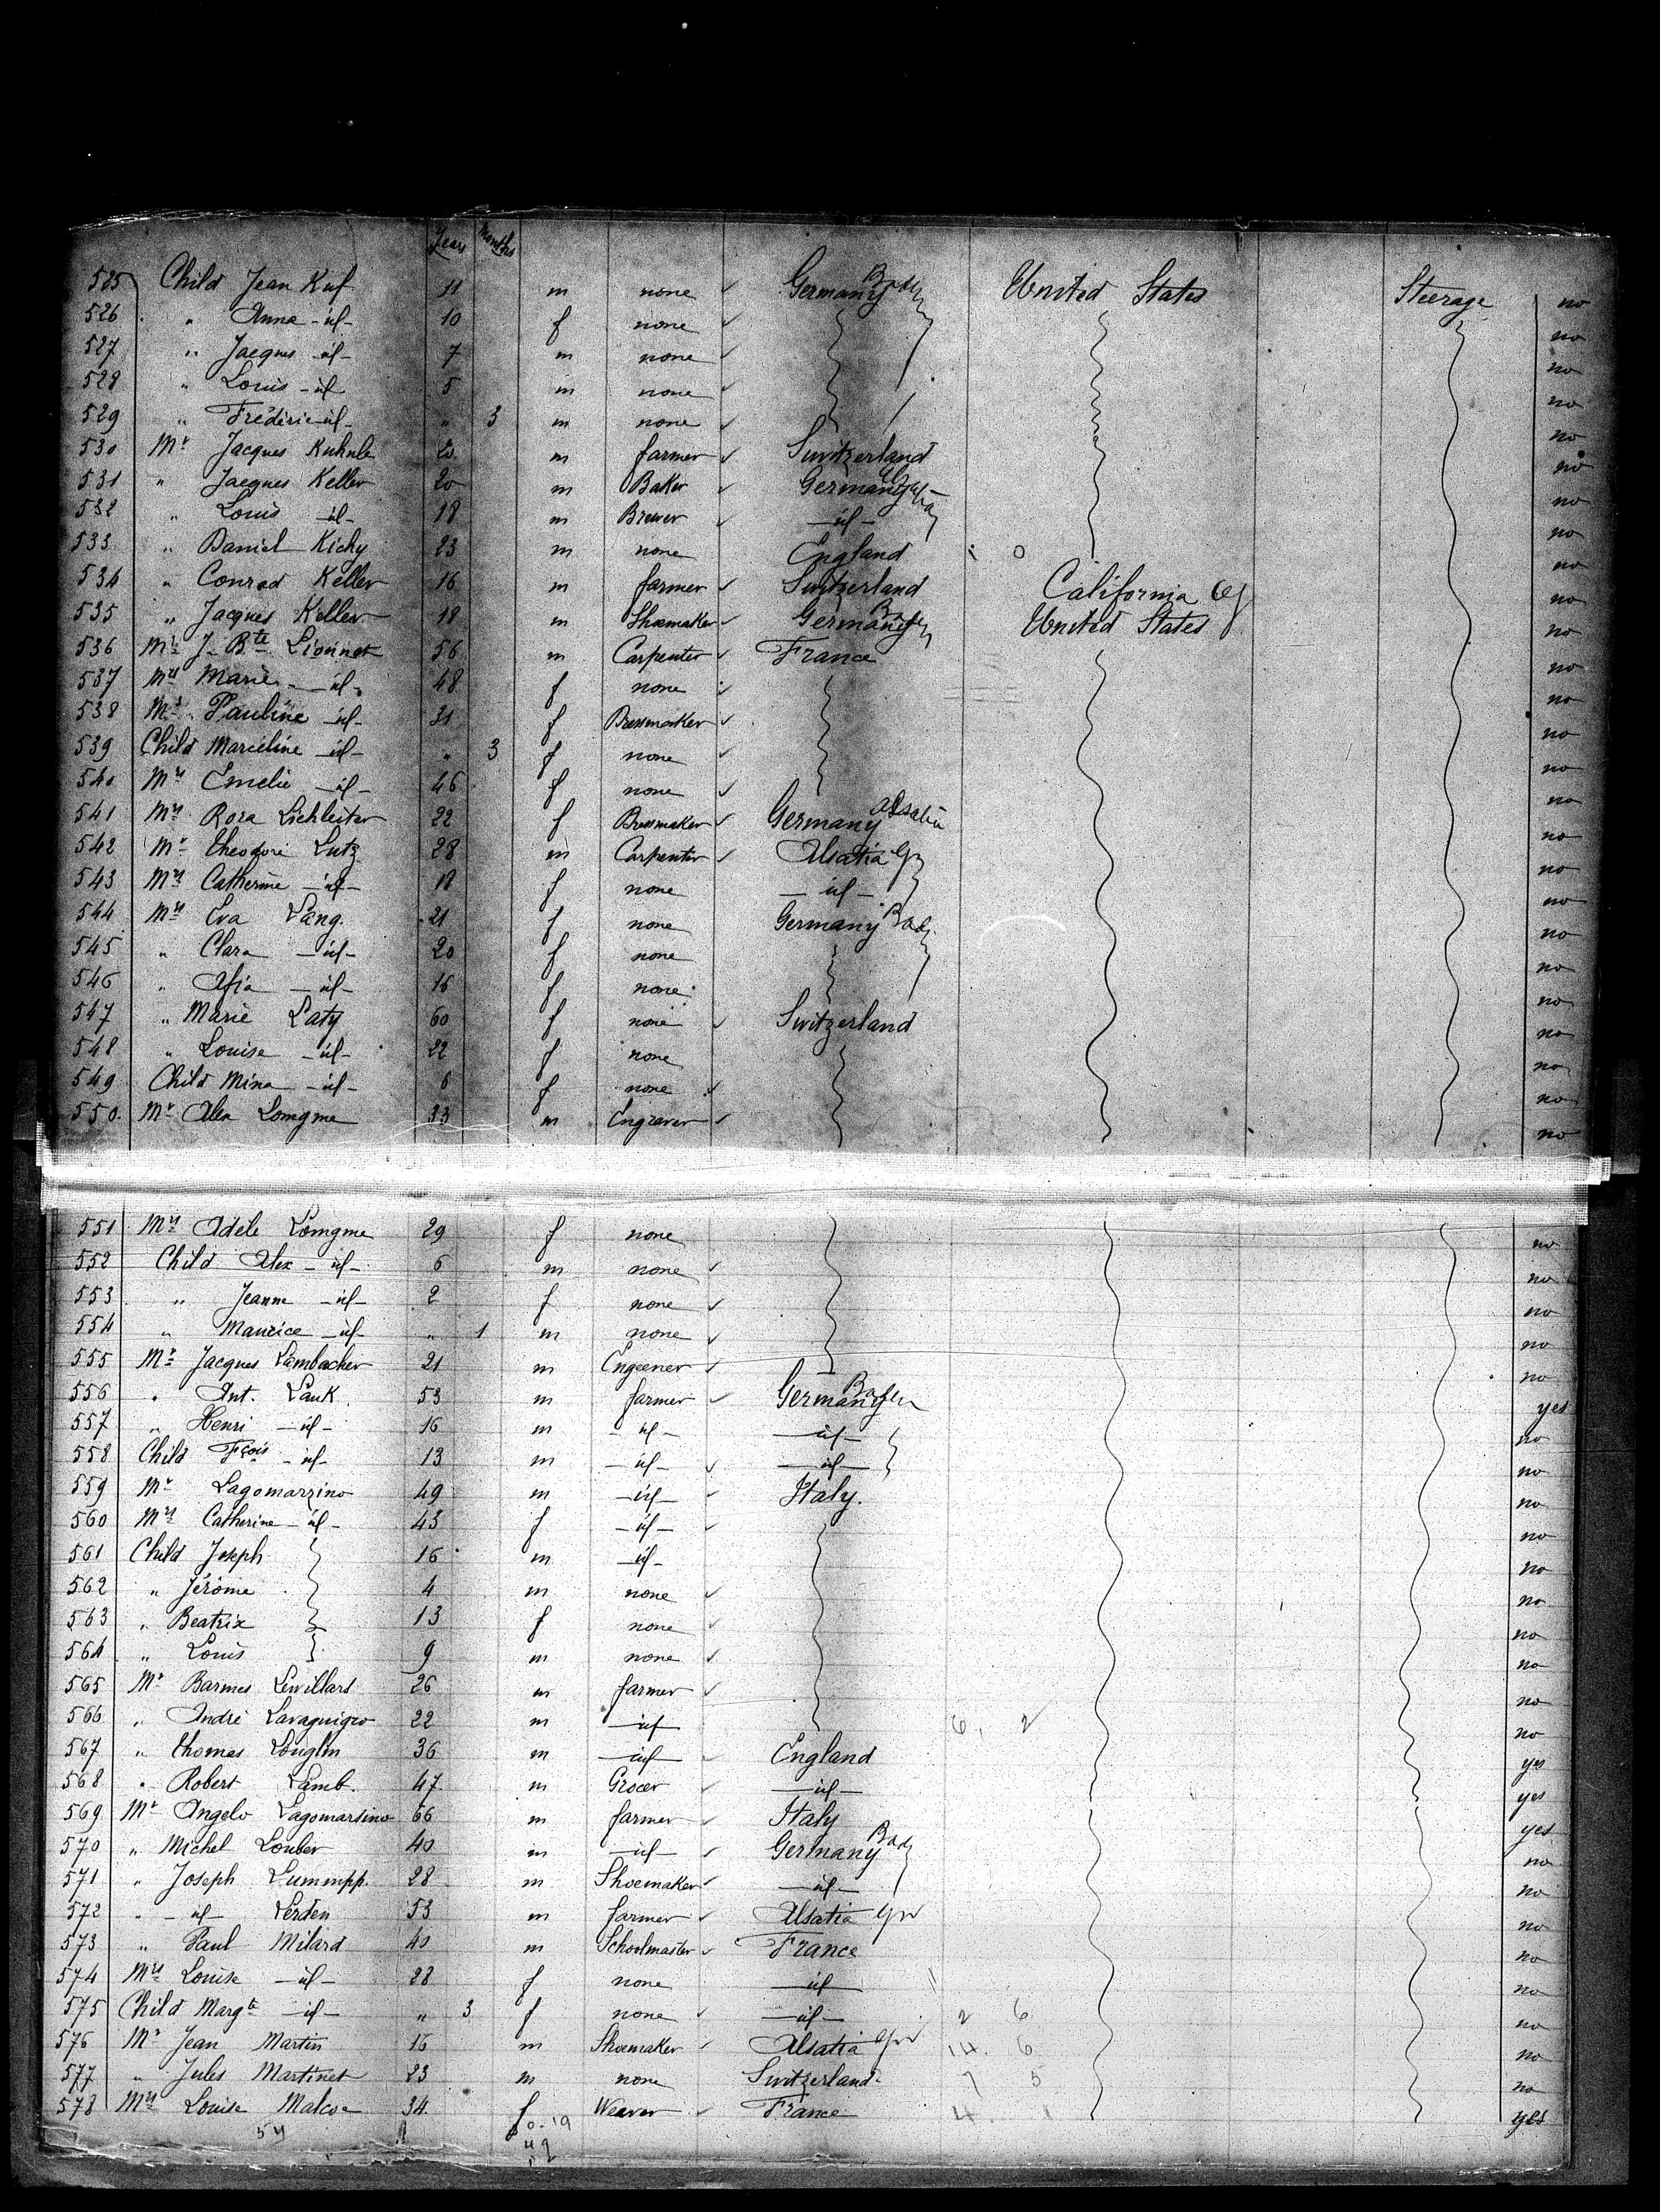 Years Months
525 Child Jean Kuf 11 m none Germany Baden United States Steerage no
526 " Anna -id- 10 f none no
527 " Jacques -id- 7 m none no
528 " Louis -id- 5 m none no
529 " Fréderic -id- " 3 m none no
530 Mr Jacques Kuhnle m farmer Switzerland no
531 " Jacques Keller 20 m Baker Germany no
532 " Louis -id- 18 m Brewer -id- no
533 " Daniel Kichy 23 m none England no
534 " Conrad Keller 16 m farmer Switzerland California no
535 " Jacques Keller 18 m Shoemaker Germany Baden United States no
536 Mr J. Bte Lionnet 56 m Carpenter France no
537 Mrs Marie -id- 48 f none no
538 Mrs Pauline -id- 31 f Dressmaker no
539 Child Marceline -id- " 3 f none no
540 Mrs Emelie -id- 46 f none no
541 Mrs Rosa Lichleiter 22 f Dressmaker Germany Alsatia no
542 Mr Theodore Lutz 28 m Carpenter Alsatia no
543 Mrs Catherine -id- 18 f none -id- no
544 Mrs Eva Lang. 21 f none Germany Baden no
545 " Clara -id- 20 f none no
546 " Afia -id- 16 f none no
547 " Marie Laty 60 f none Switzerland no
548 " Louise -id- 22 f none no
549 Child Mina -id- 6 f none no
550 Mr Alex Lomgme 33 m Engraver no
551 Mrs Adèle Lomgme 29 f none no
552 Child Alex -id- 6 m none no
553 " Jeanne -id- 2 f none no
554 " Maurice -id- " 1 m none no
555 Mr Jacques Lambacher 21 m Engeener no
556 " Ant. Lauk 53 m farmer Germany Baden yes
557 " Henri -id- 16 m -id- -id- no
558 Child Fçois -id- 13 m -id- -id- no
559 Mr Lagomarzino 49 m -id- Italy. no
560 Mrs Catherine -id- 43 f -id- no
561 Child Joseph 16 m -id- no
562 " Jérôme 4 m none no
563 " Beatrix 13 f none no
564 " Louis 9 m none no
565 Mr Barmes Lewillars 26 m farmer no
566 " André Lavagnigro 22 m -id- 6. 2 no
567 " Thomas Longlin 36 m -id- England yes
568 " Robert Lamb. 47 m Grocer -id- yes
569 Mr Angelo Lagomarsino 66 m farmer Italy yes
570 " Michel Louber 40 m -id- Germany Baden no
571 " Joseph Lummpp. 28 m Shoemaker -id- no
572 " -id- Lerden 53 m farmer Alsatia no
573 " Paul Milard 40 m Schoolmaster France no
574 Mrs Louise -id- 28 f none -id- no
575 Child Margte -id- " 3 f none -id- 2 6 no
576 Mr Jean Martin 16 m Shoemaker Alsatia 14. 6 no
577 " Jules Martinet 23 m none Switzerland 7 5 no
578 Mrs Louise Malcoe 34 f Weaver France 4. 1 yes
54